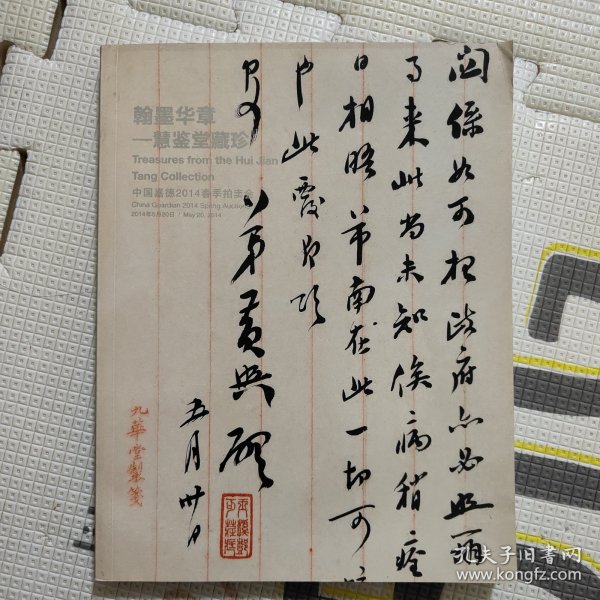 翰墨华章
—慧鉴堂藏珍
Treasures from the Hui Jian
Tang Collection
中国嘉德2014春季拍卖会
China Guardian 2014 Spring Auctions
2014年5月20日 / May 20, 2014
係 政府亦必照
来此尚未知俟病稍痊
日相晤 南在此一切可
此覆即頌
弟黄興
五月卅日
九華堂製箋
孔夫子旧书网
www.kongfz.com